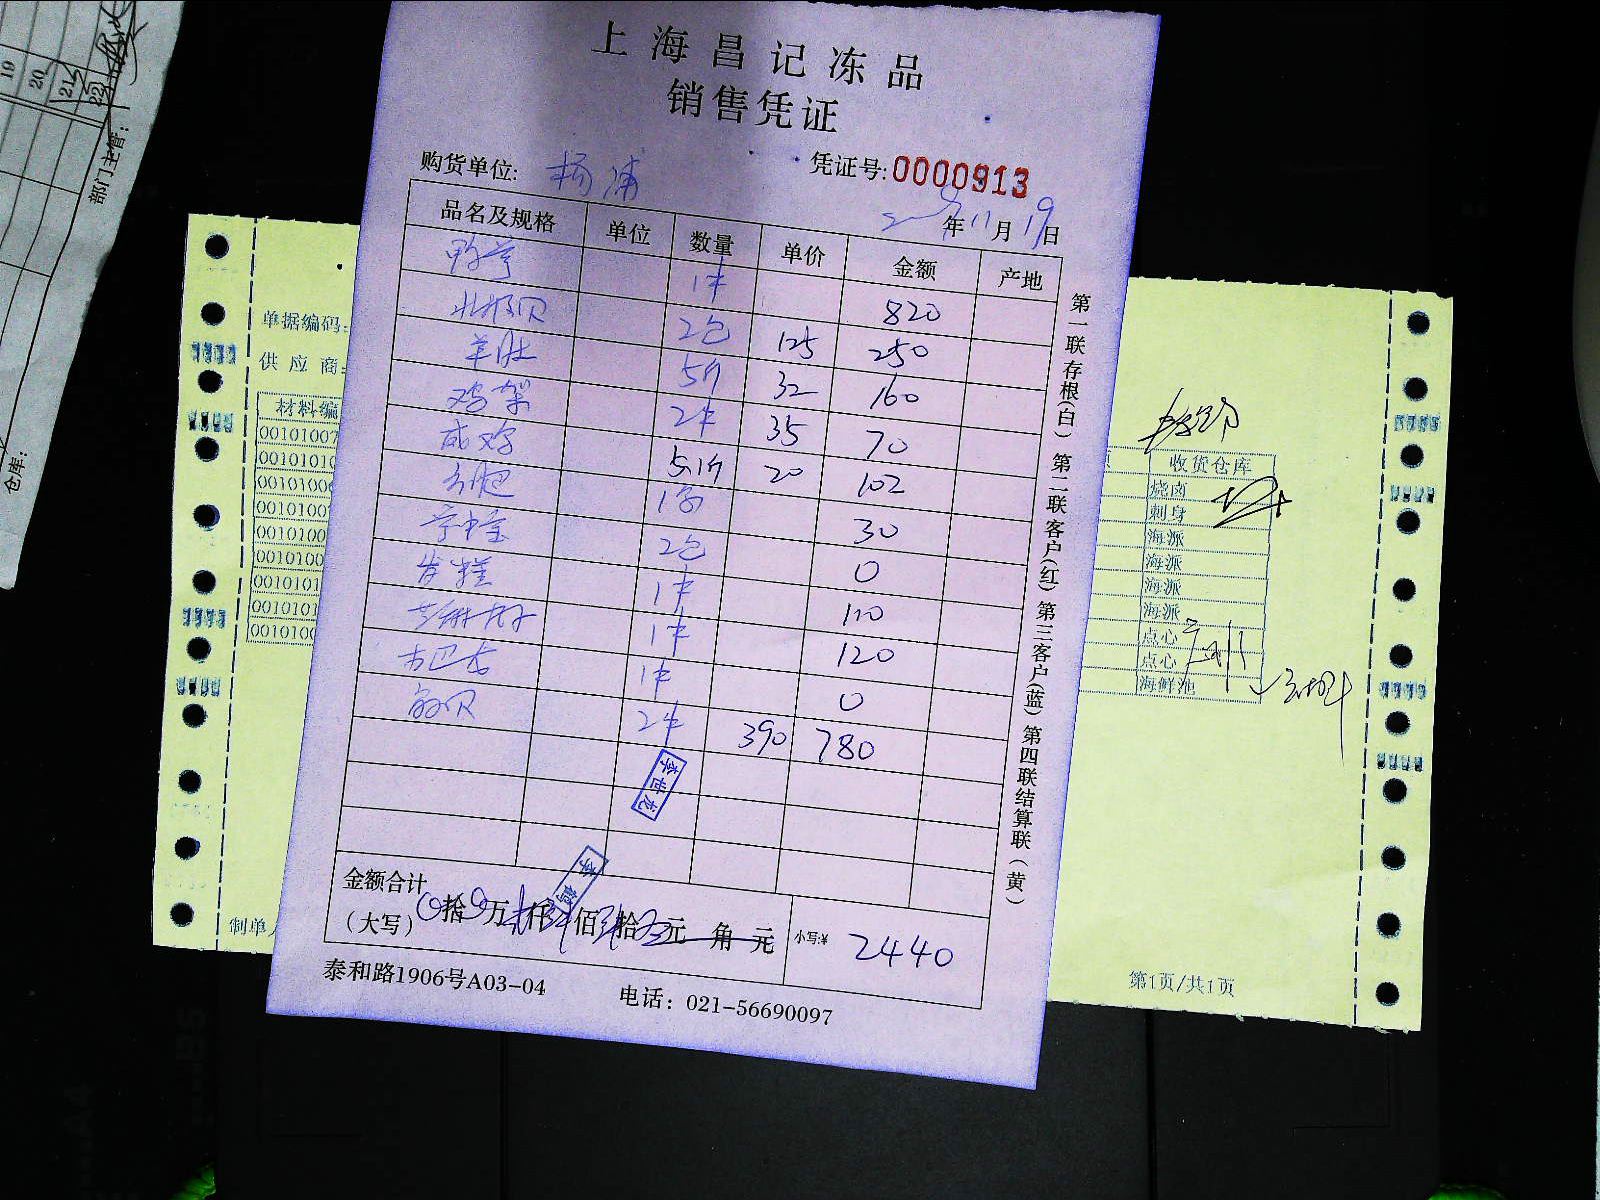 上海昌记冻品
销售凭证
购货单位: 杨浦
凭证号:0000913
年11月19日
品名及规格 单位 数量 单价 金额 产地
1件 820
北极贝 2包 125 250
羊肚 5斤 32 160
鸡架 2件 35 70
咸鸡 5.1斤 20 102
30
2包 0
发糕 1件 110
1件 120
1件 0
2件 390 780
李世龙
金额合计
(大写) 拾 万 仟 佰 拾 元 角 元 小写:¥ 2440
泰和路1906号A03-04 电话: 021-56690097
第一联存根(白) 第二联客户(红) 第三客户(蓝) 第四联结算联(黄)
单据编码:
供 应 商:
材料编
00101007
0010101
0010100
0010100
0010100
0010100
0010101
0010101
0010100
制单人
收货仓库
烧卤
刺身
海派
海派
海派
海派
点心
点心
海鲜池
第1页/共1页
19
20
21
22
部门主管:
仓库: